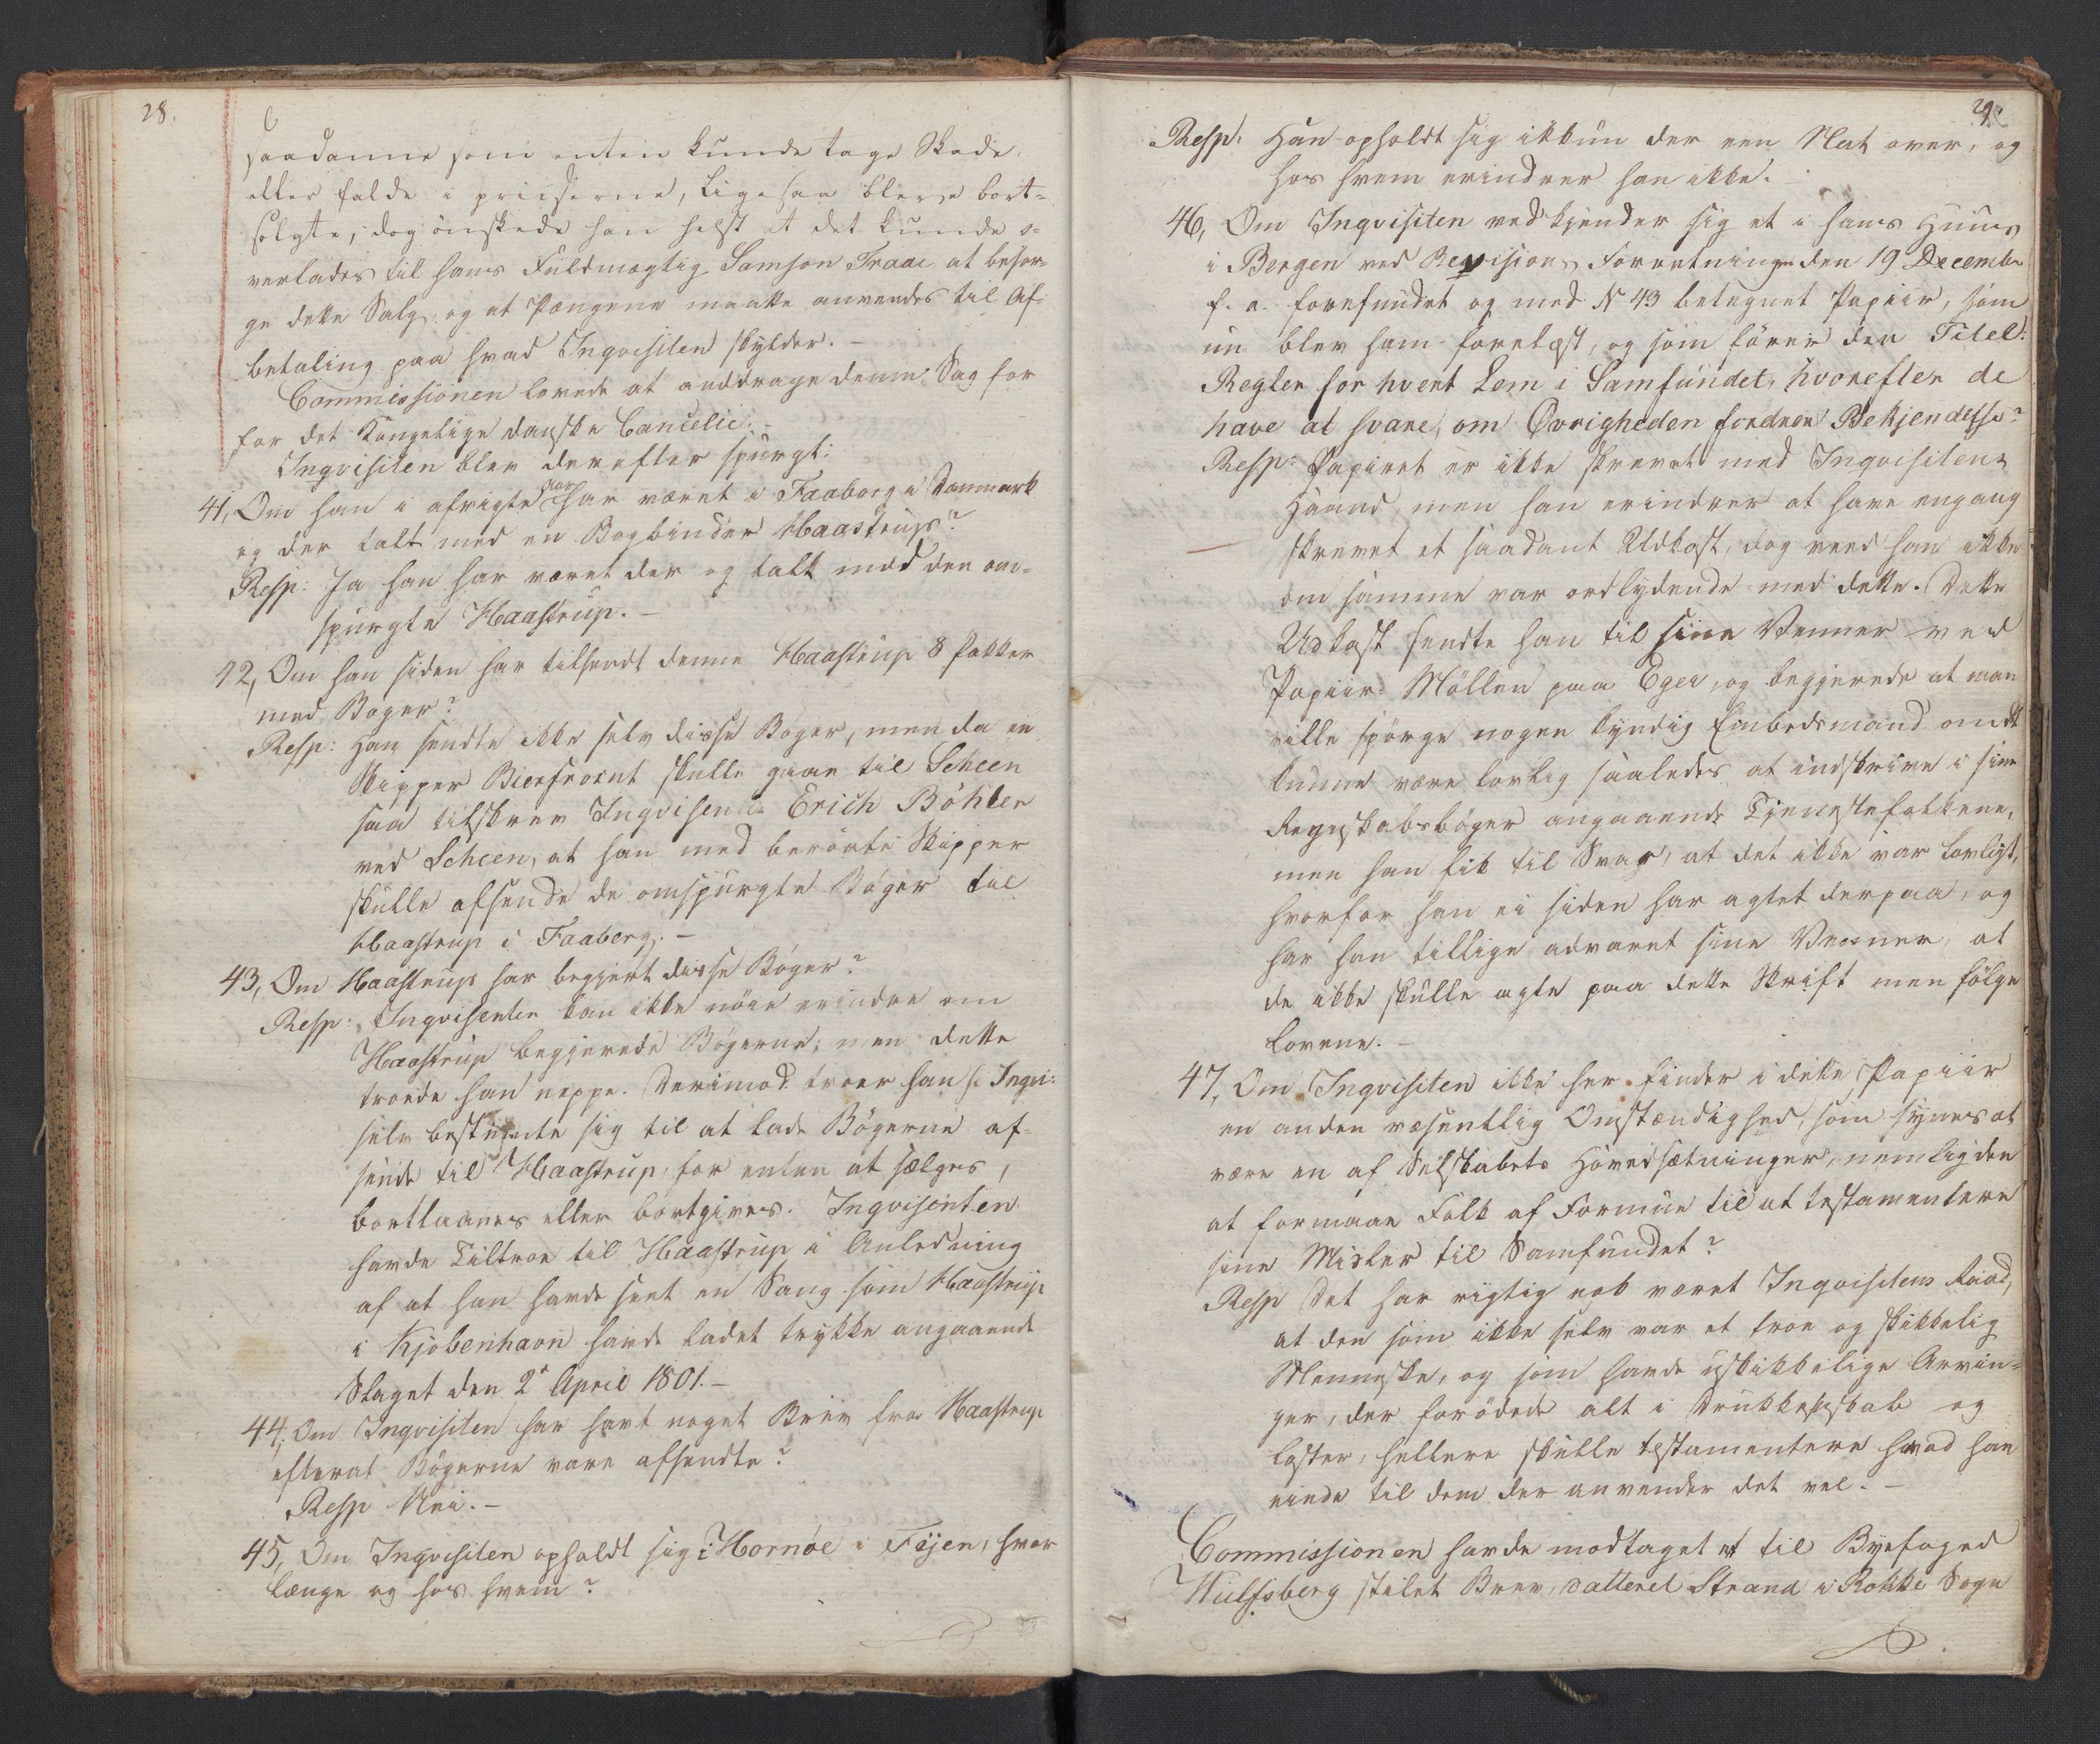 28.
saadanne som enten kunde tage Skade
eller falde i priiserne, ligesaa bleve bort-
solgte, dog ønskede han helst at det kunde o-
verlades til hans Fuldmægtig Samson Traae at besør-
ge dette Salg, og at Pengene maatte anvendes til Af-
betaling paa hvad Inqvisiten skylder. –
Commissionen lovede at anddrage denne Sag for
for det Kongelige danske Cancelie. –
Inqvisiten blev derefter spurgt:
41, Om han i afvigte Aar har været i Faaborg i Danmark
og der talt med en Bogbinder Haastrup?
Resp: Ja han har været der og talt med den om-
spurgte Haastrup. –
42, Om han siden har tilsendt denne Haastrup 8 Pakker
med Bøger?
Resp: Han sendte ikke selv disse Bøger, men da en
Skipper Biernsrost skulle gaae til Scheen
saa tilskrev Inqvisenten Erich Bøhler
ved Scheen, at han med berørte Skipper
skulle afsende de omspurgte Bøger til
Haastrup i Faaberg. –
43, Om Haastrup har begjert disse Bøger?
Resp: Inqvisenten kan ikke nøie erindre om
Haastrup begjerede Bøgerne; men dette
troede han neppe. Derimod troer han s: Inqvi:
selv bestemte sig til at lade Bøgerne af-
sende til Haastrup, for enten at sælges,
bortlaanes eller bortgives. Inqvisenten
havde Tiltroe til Haastrup i Anledning
af at han havde seet en Sang som Haastrup
i Kjøbenhavn havde ladet trykke angaaende
Slaget den 2de April 1801. –
44, Om Inqvisiten har havt noget Brev fra Haastrup
efterat Bøgerne vare afsendte?
Resp Nei. –
45, Om Inqvisiten opholdt sig i Hornøe i Fyen, hvor
længe og hos hvem?
29.
Resp: Han opholdt sig ikkun der een Nat over, og
hos hvem erindrer han ikke. –
46, Om Inqvisiten vedkjender sig et i hans Huus
i Bergen ved Revisions Forretningen den 19 Decembr
f. a. forefundet og med No 43 betegnet Papiir, som
nu blev ham forelæst, og som fører den Titel:
Regler for hvert Lem i Samfundet, hvorefter de
have at svare, om Øvrigheden fordrer Bekjendelse?
Resp: Papiret er ikke skrevet med Inqvisitens
Haand, men han erindrer at have engang
skrevet et saadant Udkast, dog veed han ikke
om samme var ordlydende med dette. Dette
Udkast sendte han til sine Venner ved
Papiir-Møllen paa Eger, og begjerede at man
ville spørge nogen kyndig Embedsmand om det
kunne være lovlig saaledes at indskrive i sine
Regnskabsbøger angaaende Tjenestefolkene,
men han fik til Svar, at det ikke var lovligt,
hvorfor han ei siden har agtet derpaa, og
har han tillige advaret sine Venner, at
de ikke skulle agte paa dette Skrift men følge
Lovene. –
47, Om Inqvisiten ikke her finder i dette Papiir
en anden væsentlig Omstændighed, som synes at
være en af Selskabets Hovedsætninger, nemlig den
at formaae Folk af Formue til at testamentere
sine Midler til Samfundet?
Resp Det har rigtig nok været Inqvisitens Raad,
at den som ikke selv var et troe og skikkelig
Menneske, og som havde uskikkelige Arvin-
ger, der forødede alt i Drukkenskab og
Laster, hellere skulle testamentere hvad han
eiede til dem der anvender det vel. –
Commissionen havde modtaget et til Byefoged
Wulfsberg stilet Brev, datteret Strand i Rokke Sogn